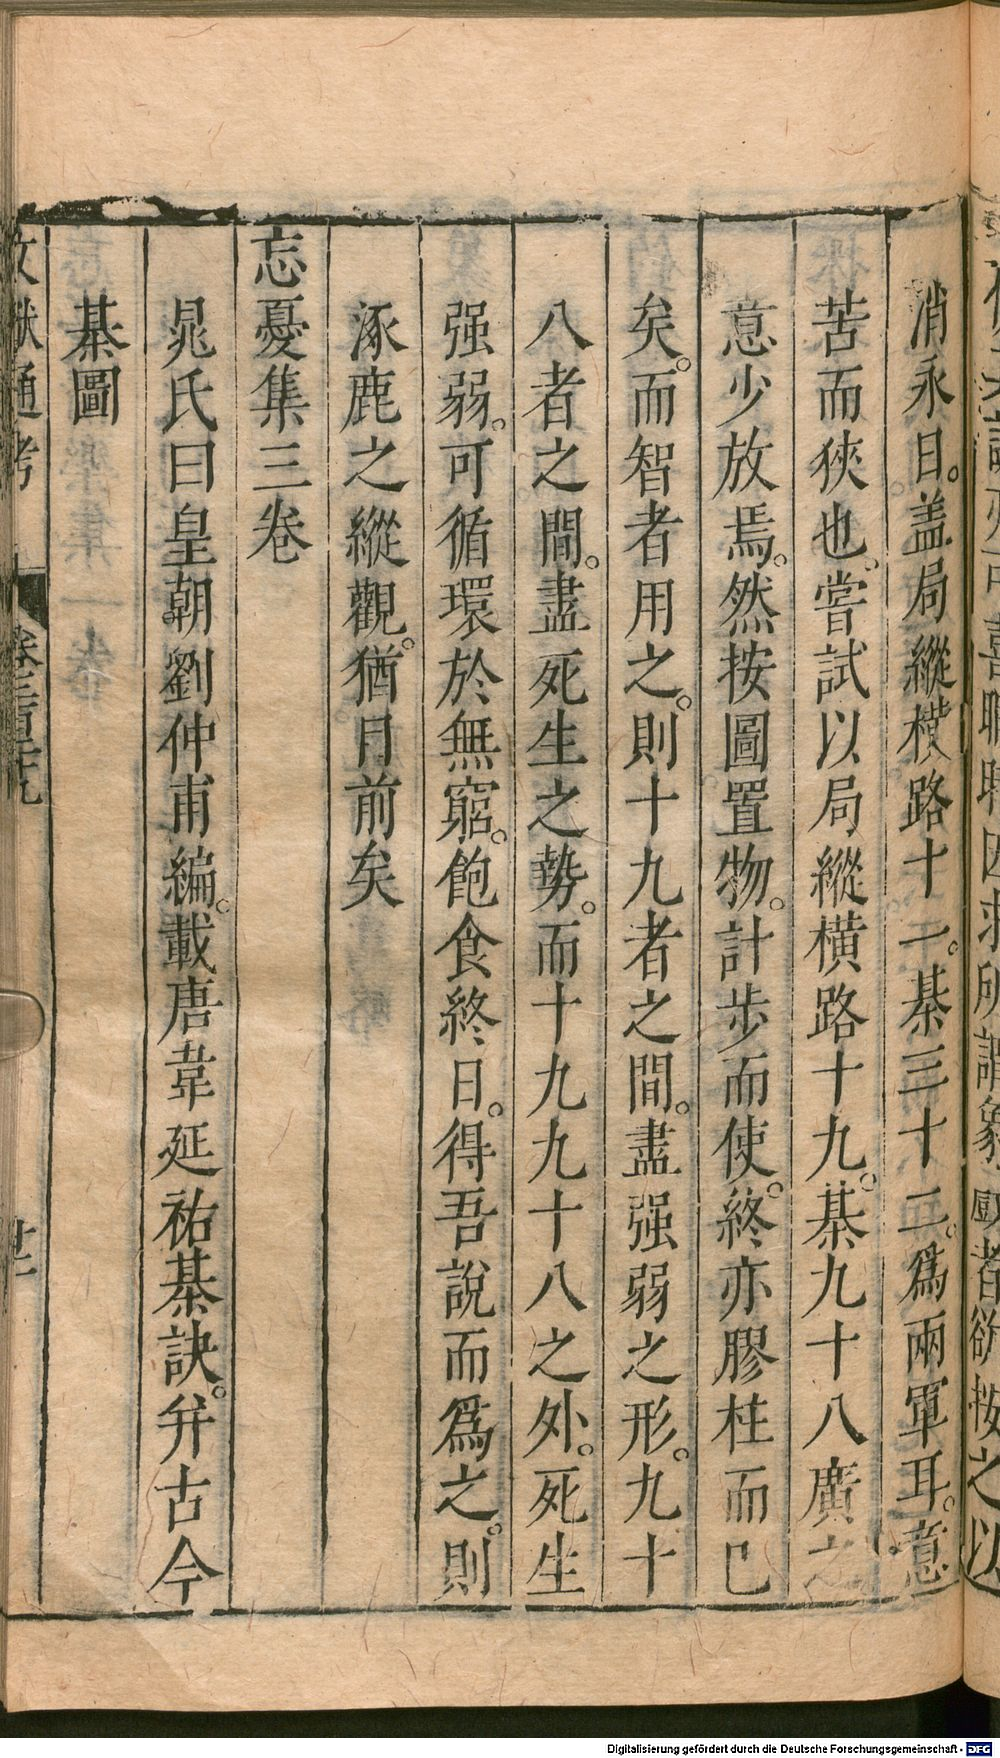 消永日。蓋局縱橫路十一。棊三十二。爲兩軍耳。意
苦而狹也。嘗試以局縱橫路十九。棊九十八廣之
意少放焉。然按圖置物。計步而使。終亦膠柱而已
矣。而智者用之。則十九者之間。盡强弱之形。九十
八者之間。盡死生之勢。而十九九十八之外。死生
强弱。可循環於無窮。飽食終日。得吾說而爲之。則
涿鹿之縱觀。猶目前矣
忘憂集三卷
晁氏曰皇朝劉仲甫編。載唐韋延祐棊訣。弁古今
棊圖
文獻通考
Digitalisierung gefördert durch die Deutsche Forschungsgemeinschaft - DFG